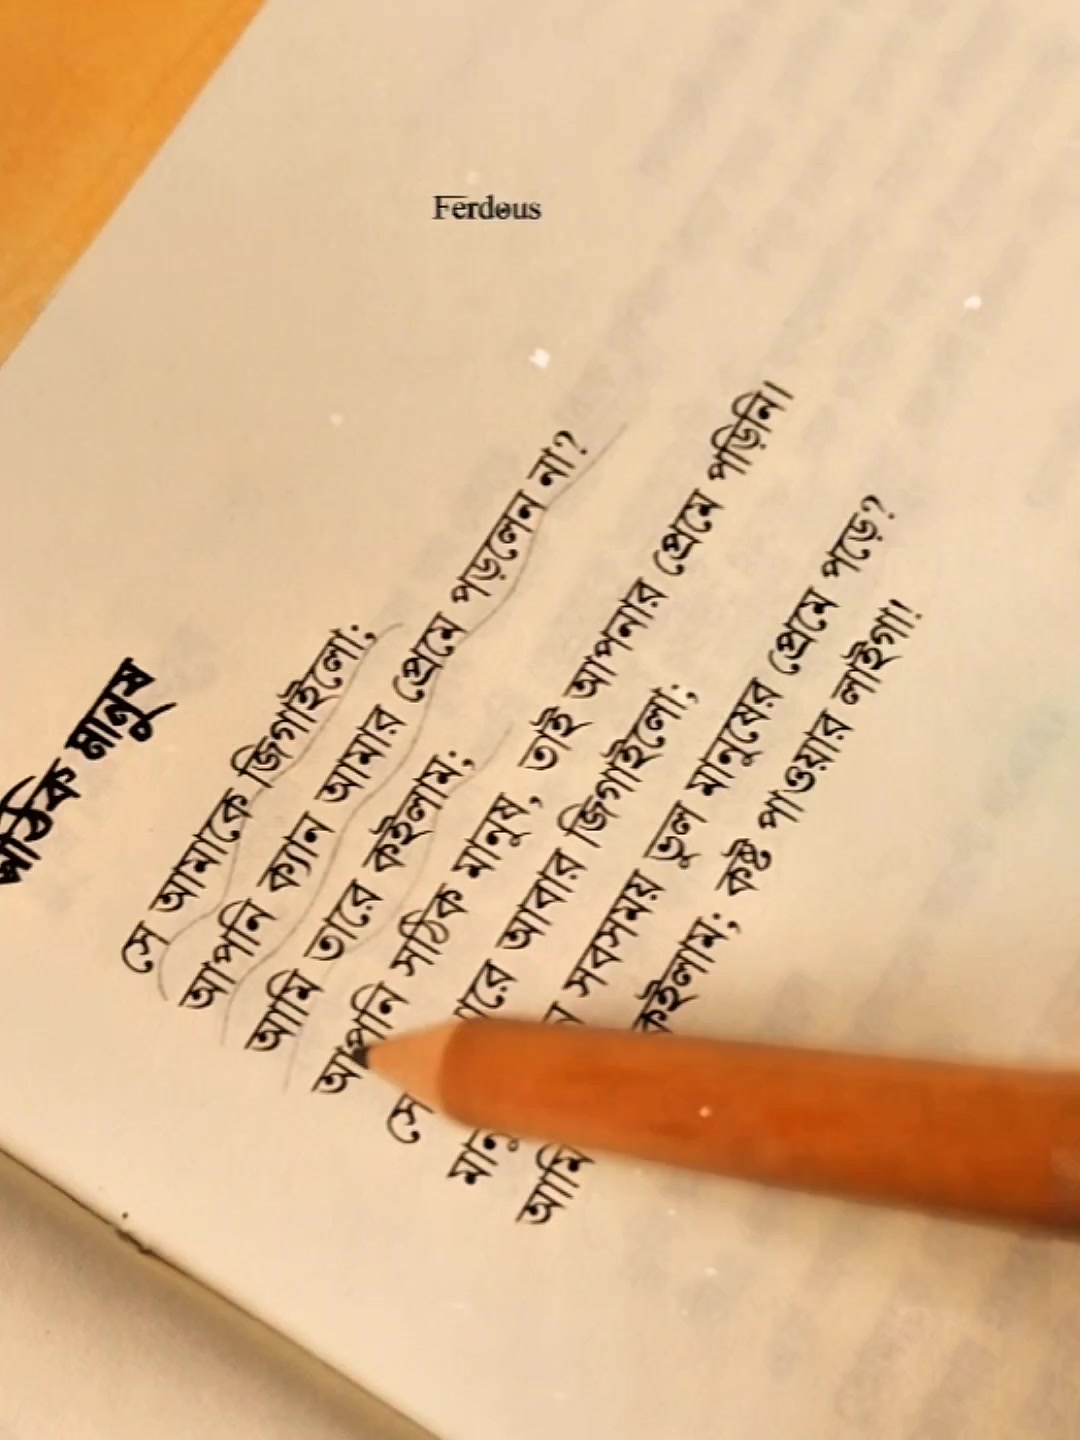 Ferdous
সঠিক মানুষ
সে আমাকে জিগাইলো;
আপনি ক্যান আমার প্রেমে পড়লেন না?
আমি তারে কইলাম;
আপনি সঠিক মানুষ, তাই আপনার প্রেমে পড়িনি।
সে আবার জিগাইলো;
সবসময় ভুল মানুষের প্রেমে পড়ে?
আমি কইলাম; কষ্ট পাওয়ার লাইগা!